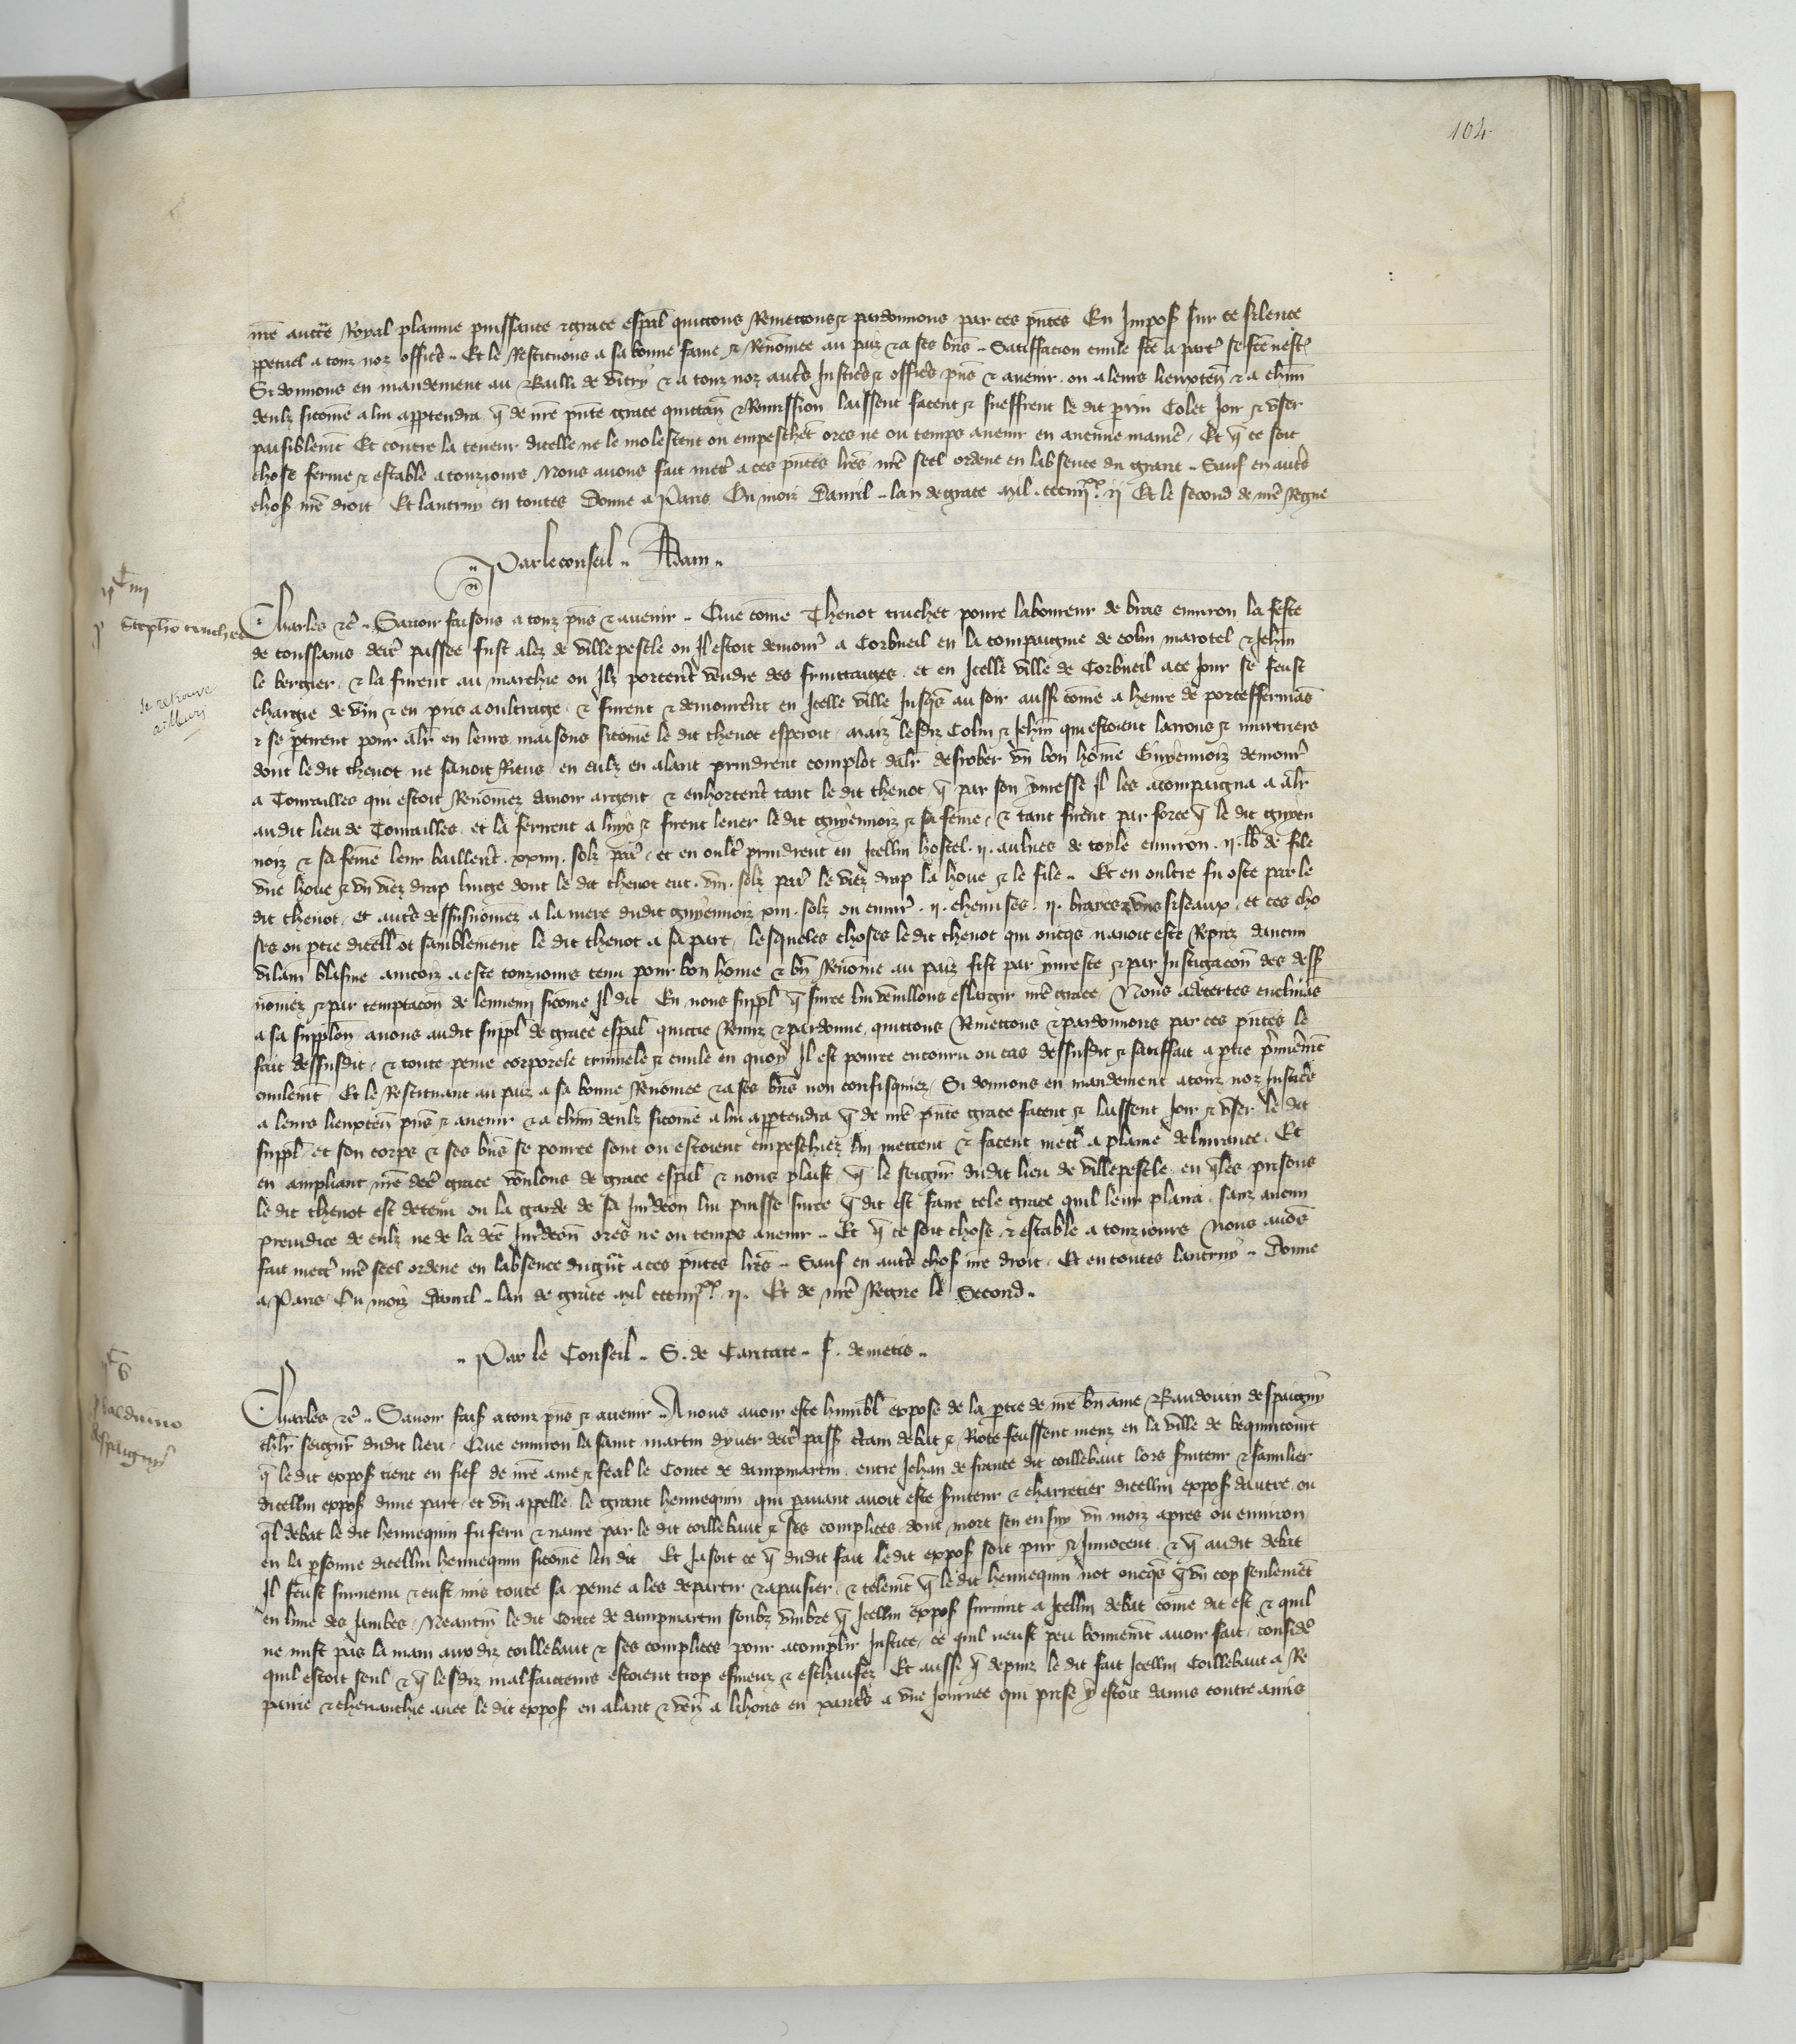 104
nr̃e auctẽ Royal plainne puissance & grace esp̃al quittons Remettons & pardonnons par ces p̃ntes En Impos̃ sur ce silence
ppetuel a touz noz offic̃s .. Et le Restituons a sa bonne fame & Renõmee au paiz & a ses bñs .. Satisfacion ciuile fc̃e a partẽ se fc̃e nest .
Si donnons en mandement au Bailli de vitry & a touz noz aut̃s Justic̃s & offic̃s p̃ns & auenir . ou a leurs lieuxteñ & a chũn
deulz sicõme a lui app̃tendra q̃ de nr̃e p̃nte grace quittañ & Remission laissent facent & sueffrent le dit p̃rin Colet Joir & vser
paisiblem̃t Et contre la teneur dicelle ne le molestent ou empeschẽt ores ne ou temps auenir en aucune manie᷑ . Et q̃ ce soit
chose ferme & estable a touziours Nous auons fait mett̃ a ces p̃ntes lr̃es nr̃e seel ordene en labsence du grant .. Sauf en aut̃s
chos̃ nr̃e droit Et lautruy en toutes Donne a Paris Ou moiz Dauril .. lan de grace mil . ccciiijxx . ij Et le second de nr̃e Regne
.. Par le conseil .. Adam ..
ijC iiij
Steph̃o truchet
Charles &c̃ .. Sauoir faisons a touz p̃ns & auenir .. Que cõme Thenot truchet poure laboureur de bras enuiron la feste
de toussains derr̃ passee fust alez de villepescle ou Il estoit demour᷑ a Corbueil en la compaignie de colin marotel & Jehañ
le bergier . & la furent au marchie ou Ilz porter̃t vendre des fruittaiges . et en Icelle ville de Corbueil a ce Jour se feust
se retrouve
ailleurs
chargie de vin & en pris a oultrage . & furent & demourer̃nt en Icelle ville Jusq̃s au soir aussi cõme a heure de porteffermãs
& se p̃tirent pour al̃r en leurs maisons sicõme le dit thenot esperoit . maiz lesdiz Colin & Jehañ qui estoient larrons & murtriers
dont le dit thenot ne sauoit Riens en eulz en alant prindrent complot dal̃r desrober vn bon hõme Guyẽnnoiz demour᷑
a Tourailles qui estoit Renõmez dauoir argent . & enhorter̃t tant le dit thenot q̃ par son yuresse Il les acompaigna a al̃r
audit lieu de Tourailles . et la ferirent a luys & firent leuer le dit guyẽnnoiz & sa fẽme . & tant firent par force q̃ le dit guyen
noiz & sa fẽme leur bailler̃t . xxiiij . solz par᷑ . et en oult᷑ prindrent en Icellui hostel . ij . aulnes de toyle enuiron . ij . lb̃ de file
vne houe & vn viez drap linge dont le dit thenot eut . viij . solz par᷑ le viez drap la houe & le file .. Et en oultre fu oste par le
dit thenot . et aut̃s dessusnõmez a la mere dudit guyẽnnoiz xiij . solz ou enuir᷑ . ij . chemises . ij . braies & vns siseaux . et ces cho
ses ou ptie dicell᷑ ot samblement le dit thenot a sa part . lesqueles choses le dit thenot qui oncq̃s nauoit este Repris daucun
vilain blasme aincoiz a este touziours tenu pour bon hõme & bñ Renõme au paiz fist par yuresse & par Instigacoñ des dess̃
nõmez & par temptacoñ de lennemi sicõme Il dit . En nous suppl̃ q̃ surce lui vueillons eslargir nr̃e grace . Nous adecertes enclinãs
a sa supplicoñ auons audit suppl̃ de grace esp̃al quittie Remiz & pardonne . quittons Remettons & pardonnons par ces p̃ntes le
fait dessusdit . & toute peine corporele crimnele & ciuile en quoy Il est pource encouru ou cas dessusdit & satisffait a ptie p̃mierem̃t
ciuilem̃t . Et le Restituant au paiz a sa bonne Renõmee & a ses bñs non confisquiez . Si donnons en mandement a touz noz Justic̃s
a leurs lieuxteñ p̃ns & auenir & a chũn deulz sicõme a lui app̃tendra q̃ de nr̃e p̃nte grace facent & laissent Joir & vser le dit
suppl̃ . et son corps & ses bñs se pource sont ou estoient empeschiez lui mettent & facent mett̃ a plaine deliurance . Et
en ampliant nr̃e dc̃e grace voulons de grace esp̃al & nous plaist q̃ le seigñr dudit lieu de villepescle en q̃les prisons
le dit thenot est detenu ou la garde de sa Jur̃dicoñ lui puisse surce q̃ dit est faire tele grace quil leur plaira . sanz aucun
preiudice de eulz ne de la dc̃e Jur̃dicoñ ores ne ou temps auenir .. Et q̃ ce soit chose & estable a touziours Nous auõs
fait mett̃ nr̃e seel ordene en labsence du gr̃nt a ces p̃ntes lr̃es .. Sauf en aut̃s chos̃ nr̃e droit . Et en toutes lautruy .. Donne
a Paris Ou moiz Dauril .. lan de grace mil ccciiijxx . ij . Et de nr̃e Regne le Second ..
.. Par le Conseil .. S. de Caritate .. J. de metis ..
Balduino
despaigny
Charles &c̃ .. Sauoir fais̃ a touz p̃ns & auenir .. A nous auoir este humbl̃ expose de la p̃tie de nr̃e bñ ame Baudouin despaigny
chl̃r seigñr dudit lieu . Que enuiron la saint martin dyuer derr̃ pass̃ c̃tain debat & Riote feussent meuz en la ville de bequincourt
q̃ le dit expos̃ tient en fief de nr̃e ame & feal le Conte de dampmartin . entre Jehan de france dit coillebaut lors s̃uiteur & familier
dicellui expos̃ dune part . et vn appelle le grant hennequin qui p̃auant auoit este s̃uiteur & charretier dicellui expos̃ dautre . ou
q̃l debat le dit hennequin fu feru & naure par le dit coillebaut & ses complices dont mort sen ensuy vn moiz apres ou enuiron
en la p̃sonne dicellui hennequin sicõme len dit . Et Jasoit ce q̃ dudit fait le dit expos̃ soit pur & Innocent . & q̃ audit debat
Il feust suruenu & eust mis toute sa peine a les departir & apaisier . & telem̃t q̃ le dit hennequin not oncq̃s q̃ vn cop seulem̃t
en lune des Jambes . Neantm̃ le dit Conte de dampmartin soubz vmbre q̃ Icellui expos̃ suruint a Icellui debat cõme dit est & quil
ne mist pas la main auxdiz coillebaut & ses complices pour acomplir Justice . ce quil neust peu bonnem̃t auoir fait . consider᷑
quil estoit seul & q̃ lesdiz malfaicteurs estoient trop esmeuz & eschaufez Et aussi q̃ depuiz le dit fait Icellui Coillebaut a Re
pairie & cheuauchie auec le dit expos̃ en alant & veñ a lihons en santers a vne Journee qui prise y estoit damis contre amis